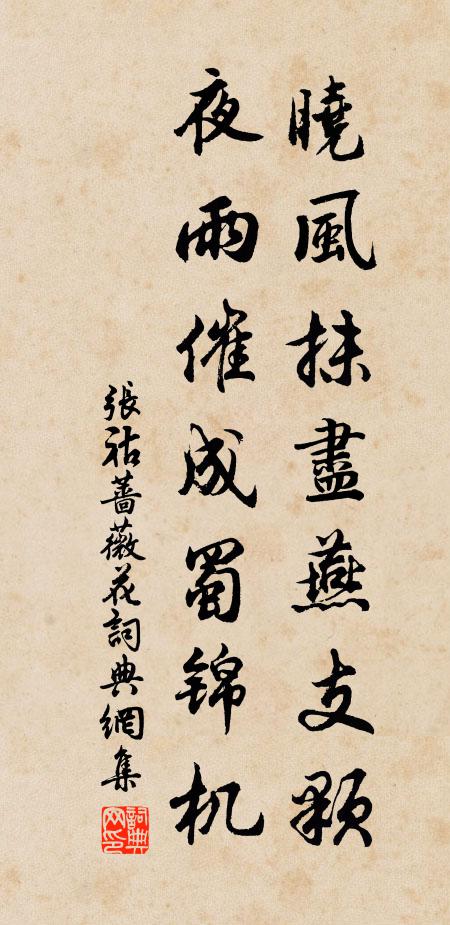 曉風抹盡燕支顆
夜雨催成蜀錦机
張祜薔薇花詞典網集
詞典網印